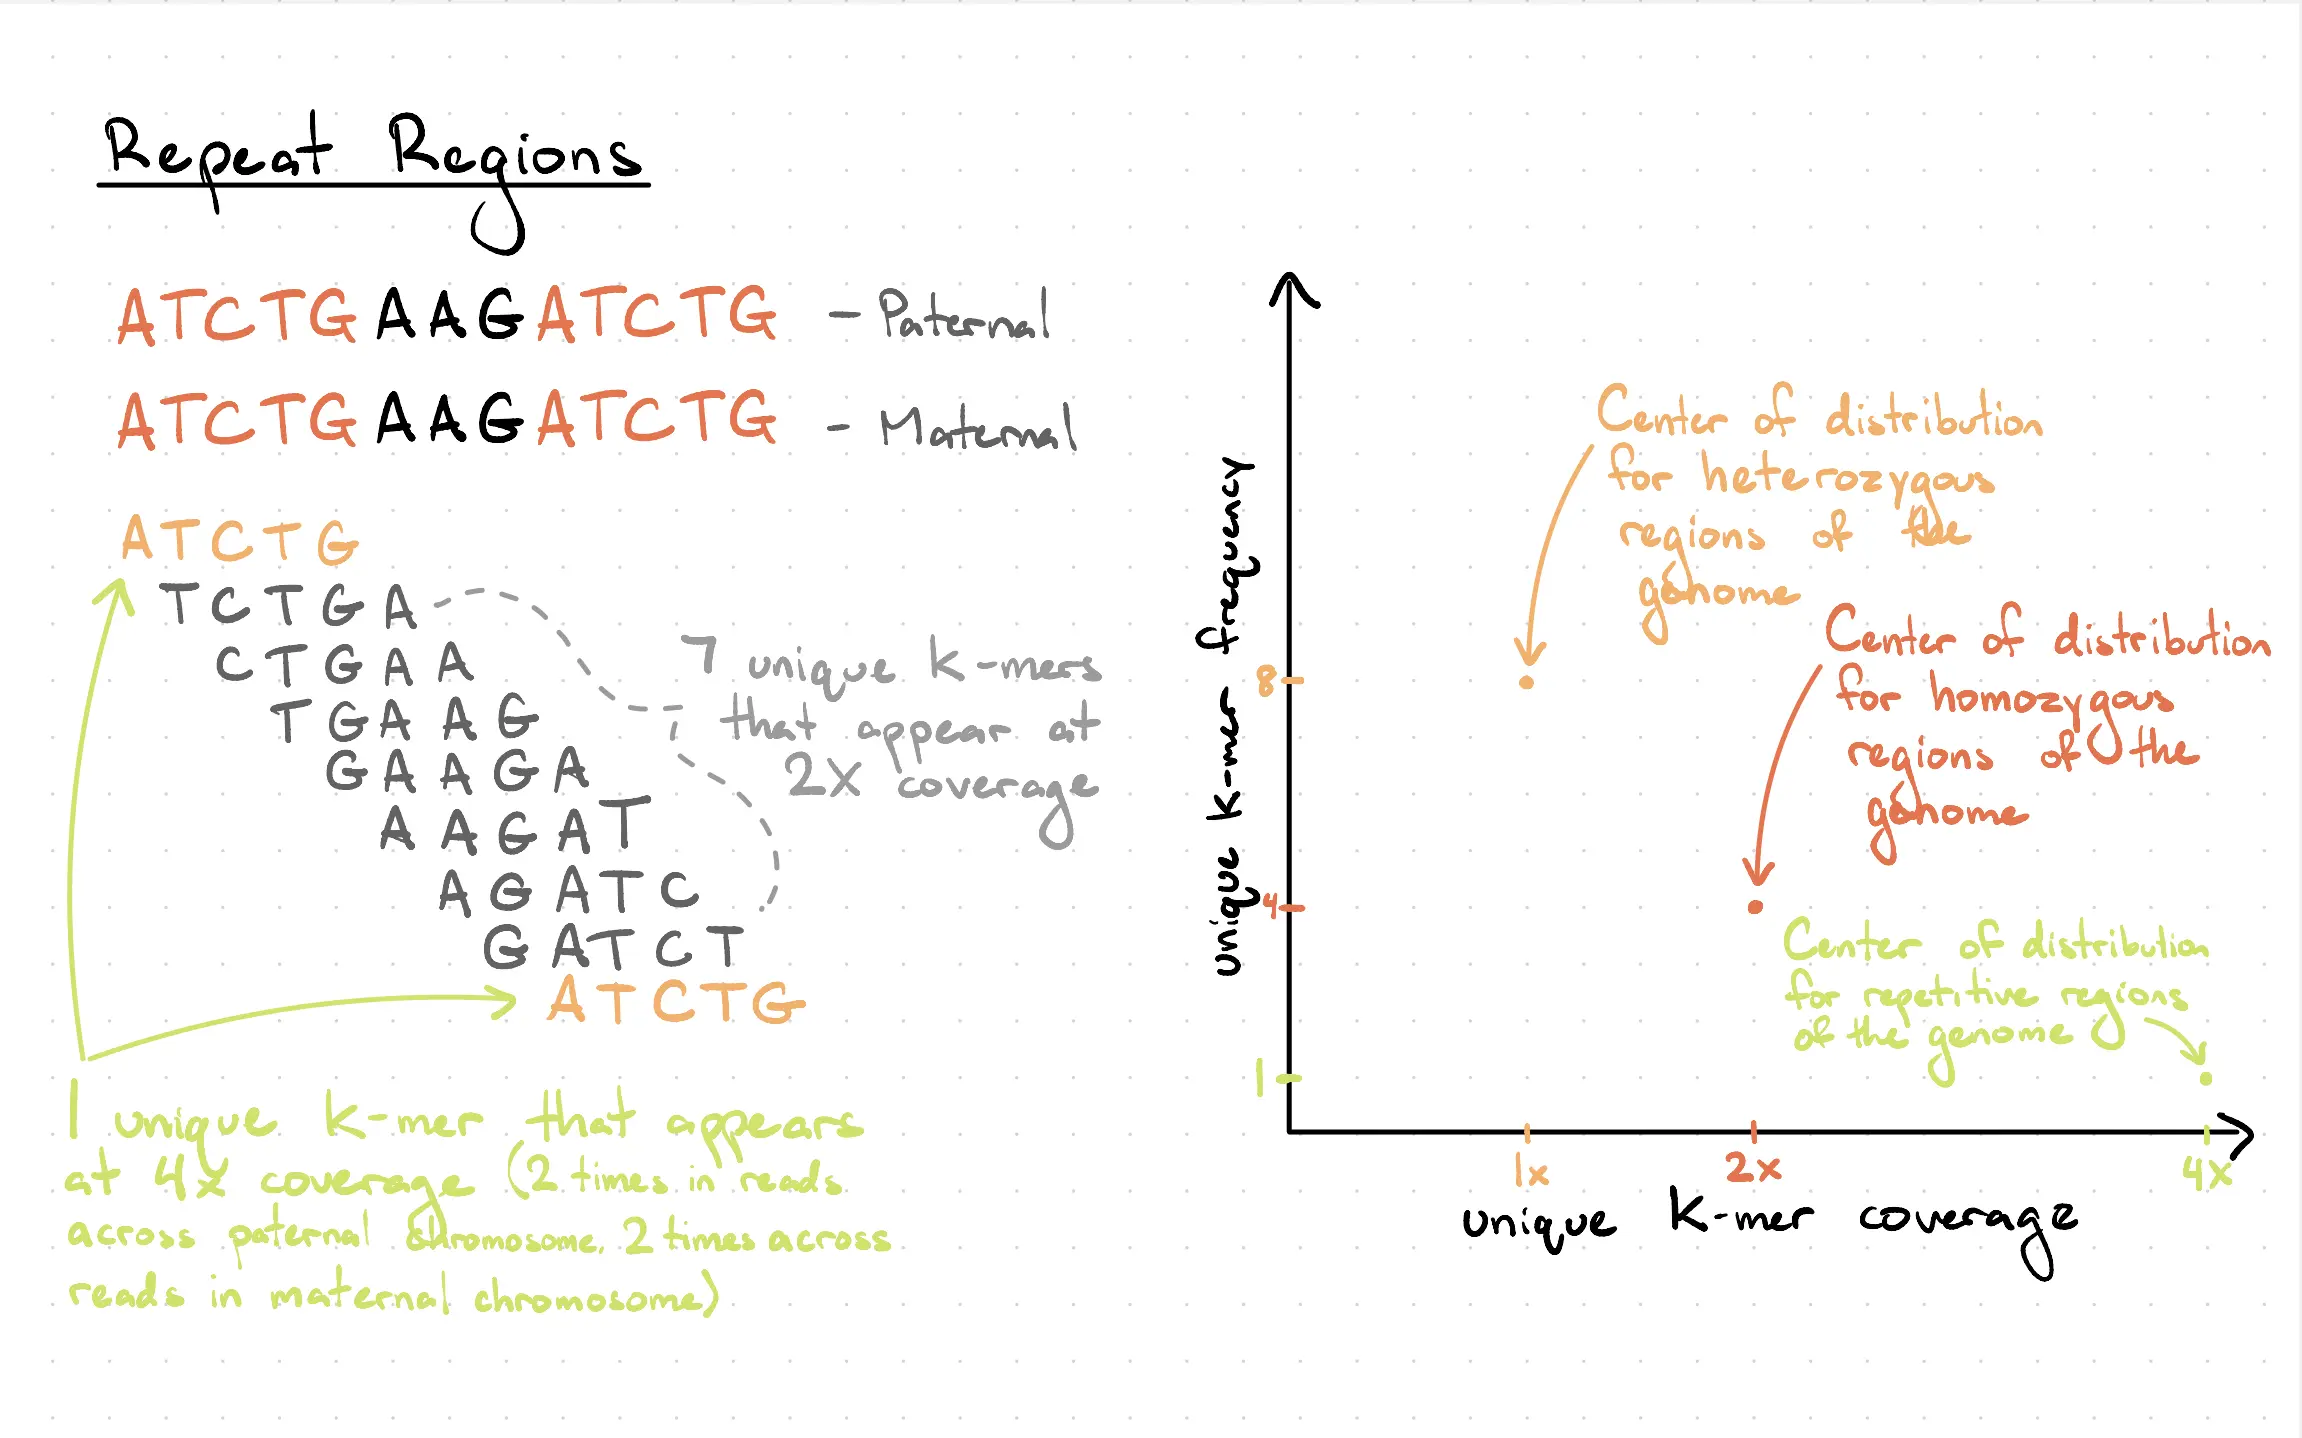 Repeat Regions
ATCTGAAGATCTG - Paternal
ATCTGAAGATCTG - Maternal
ATCTG
TCTGA
CTGAA
TGAAG
GAAGA
AAGAT
AGATC
GATCT
ATCTG
7 unique K-mers
that appear at
2X coverage
1 unique K-mer that appears
at 4x coverage (2 times in reads
across paternal chromosome, 2 times across
reads in maternal chromosome)
unique K-mer frequency
8
4
1
Center of distribution
for heterozygous
regions of the
genome
Center of distribution
for homozygous
regions of the
genome
Center of distribution
for repetitive regions
of the genome
1x
2x
4x
unique K-mer coverage